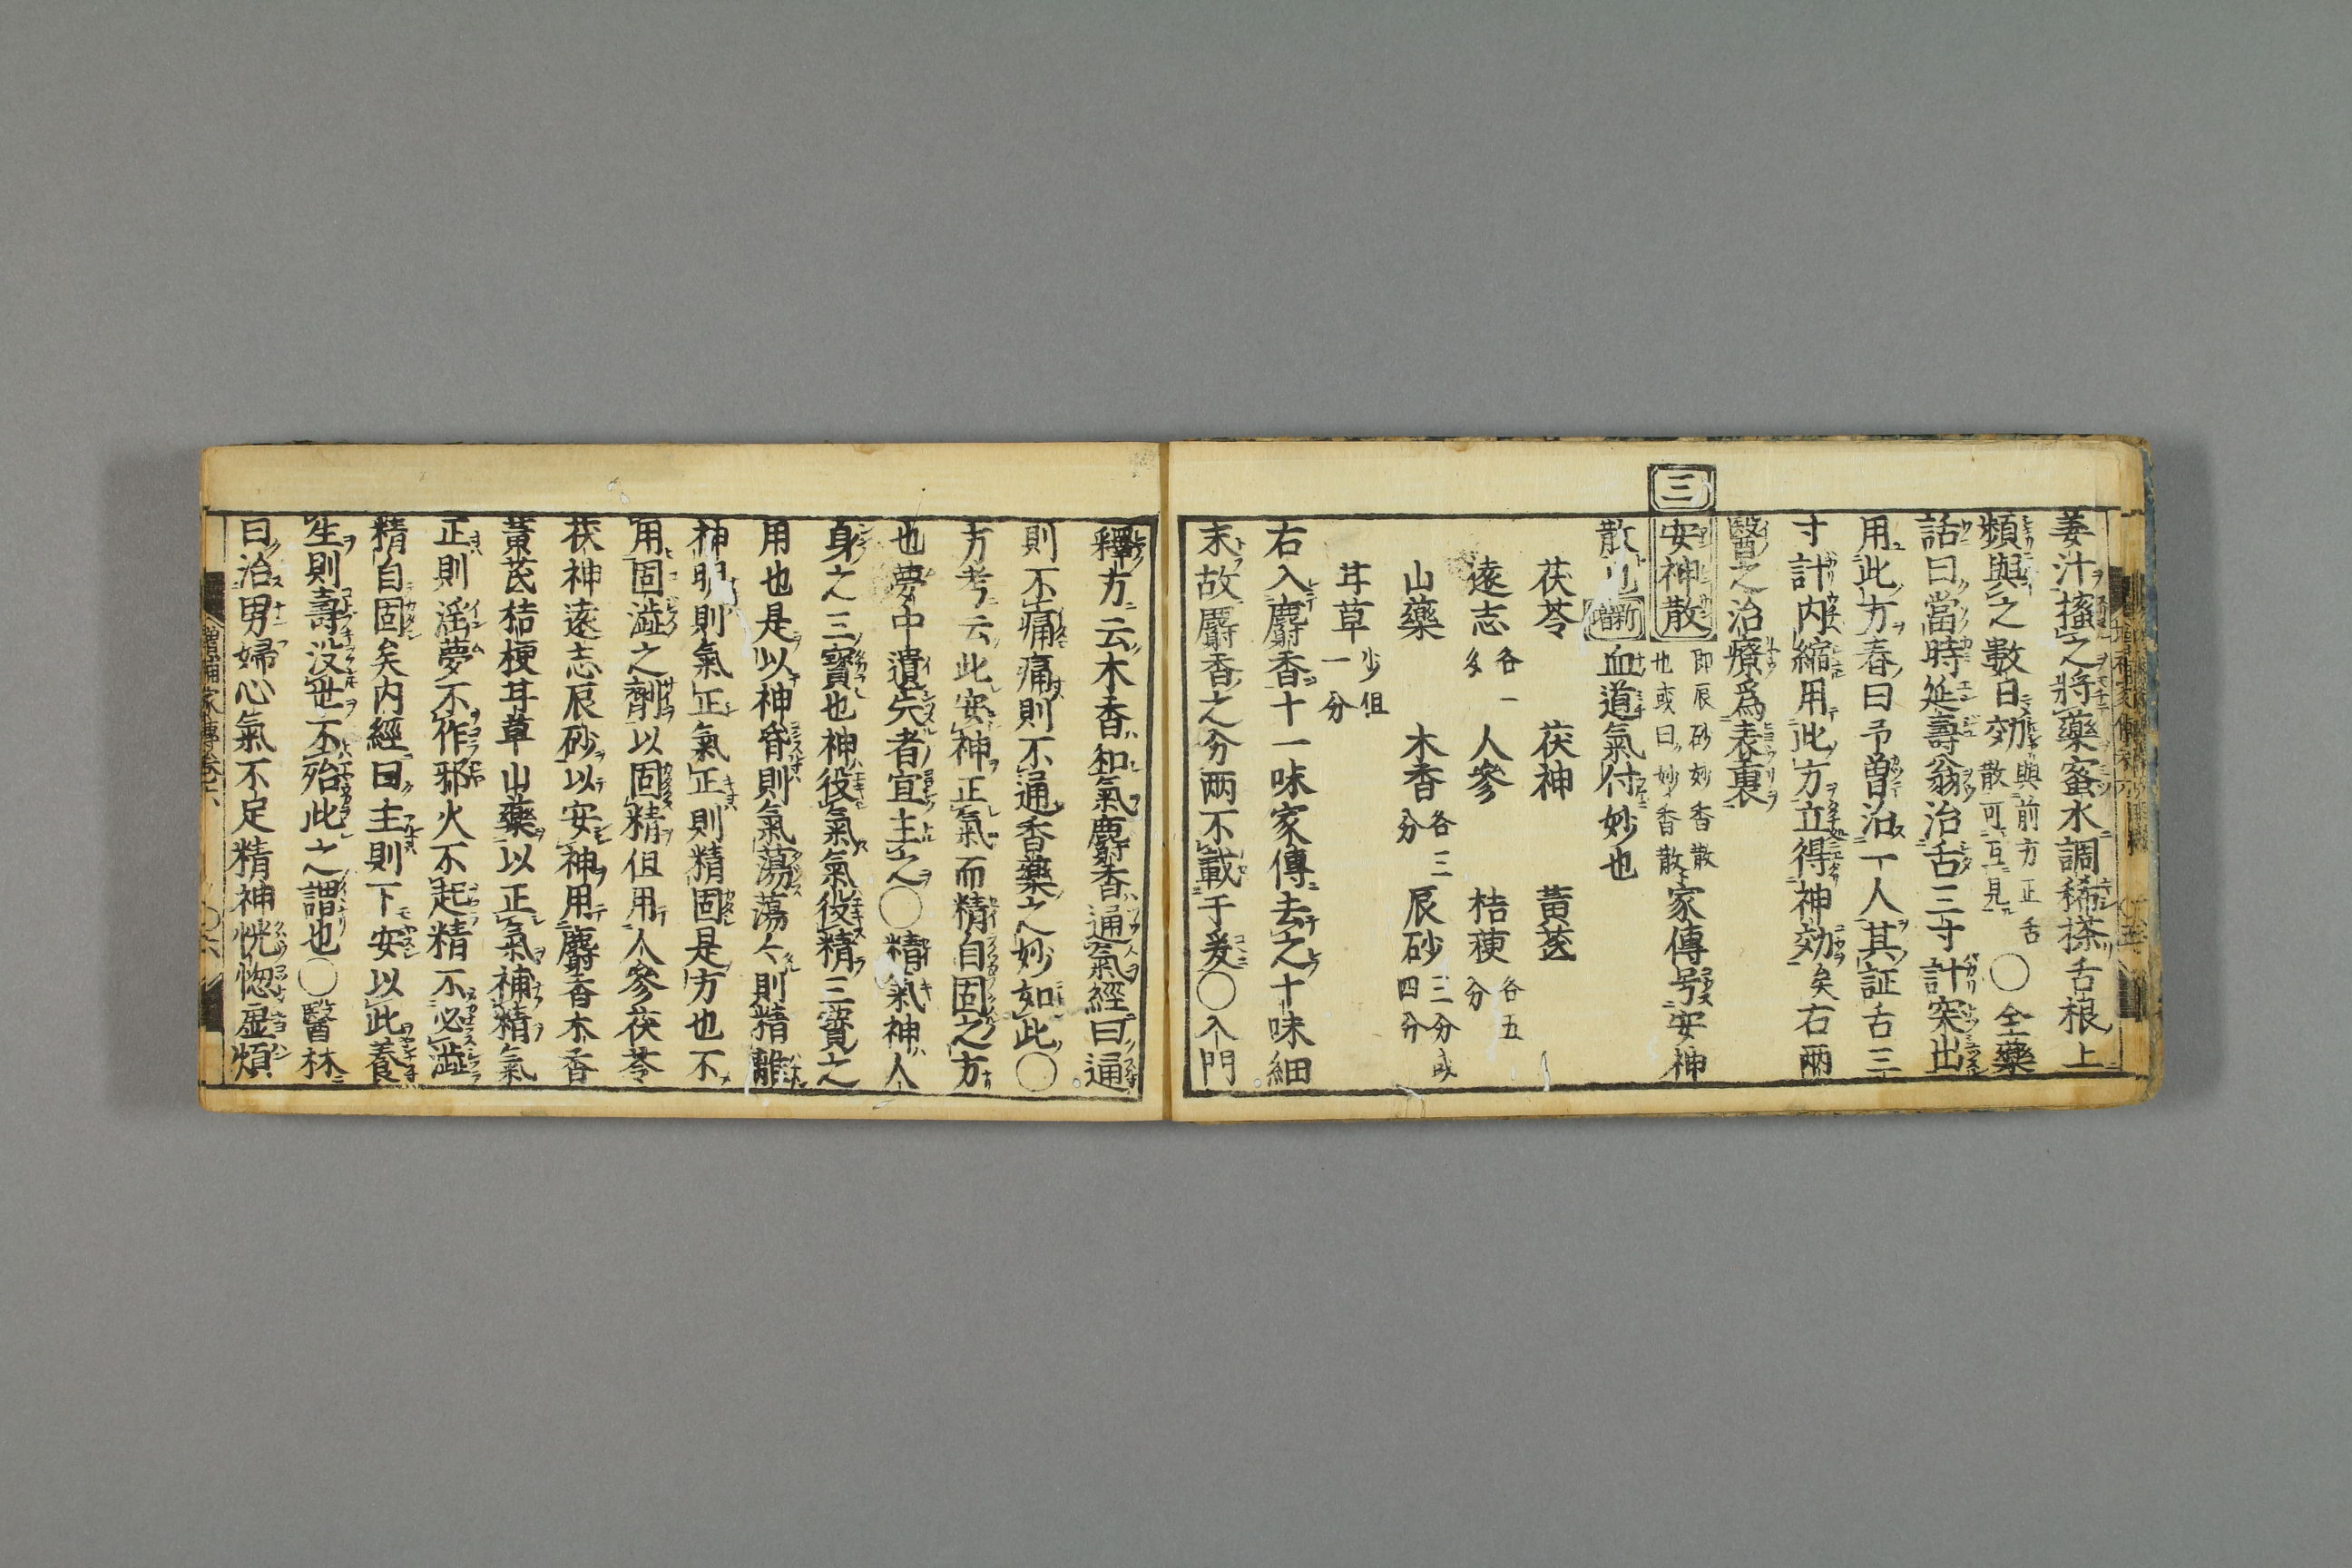 姜汁搐之將藥蜜水調稀搽舌根上
頻與之數日効與前方正舌散可互見〇仝藥
話曰當時延壽翁治舌三寸計突出
用此方春曰予曽治一人其証舌三
寸計内縮用此方立得神効矣右兩
醫之治療爲表裏
三
安神散 即辰砂妙香散也或曰妙香散 家傳号安神
散也 新增 血道氣付妙也
茯苓 茯神 黃茋
遠志 各一匁 人參 桔梗 各五分
山藥 木香 各三分 辰砂 三分或四分
甘草 少但一分
右入麝香十一味家傳去之十味細
末故麝香之分兩不載于爰〇入門
釋方云木香和氣麝香通氣經曰通
則不痛痛則不通香藥之妙如此〇
方考云此安神正氣而精自固之方
也夢中遺失者宜主之〇精氣神人
身之三寶也神役氣氣役精三寶之
用也是以神昏則氣蕩蕩々則精離
神明則氣正氣正則精固是方也不
用固澁之劑以固精但用人參茯苓
茯神遠志辰砂以安神用麝香木香
黃茋桔梗甘草山藥以正氣補精氣
正則淫夢不作邪火不起精不必澁
精自固矣内經曰主則下安以此養
生則壽没世不殆此之謂也〇醫林
曰治男婦心氣不足精神恍惚虛煩
增補家傳卷六